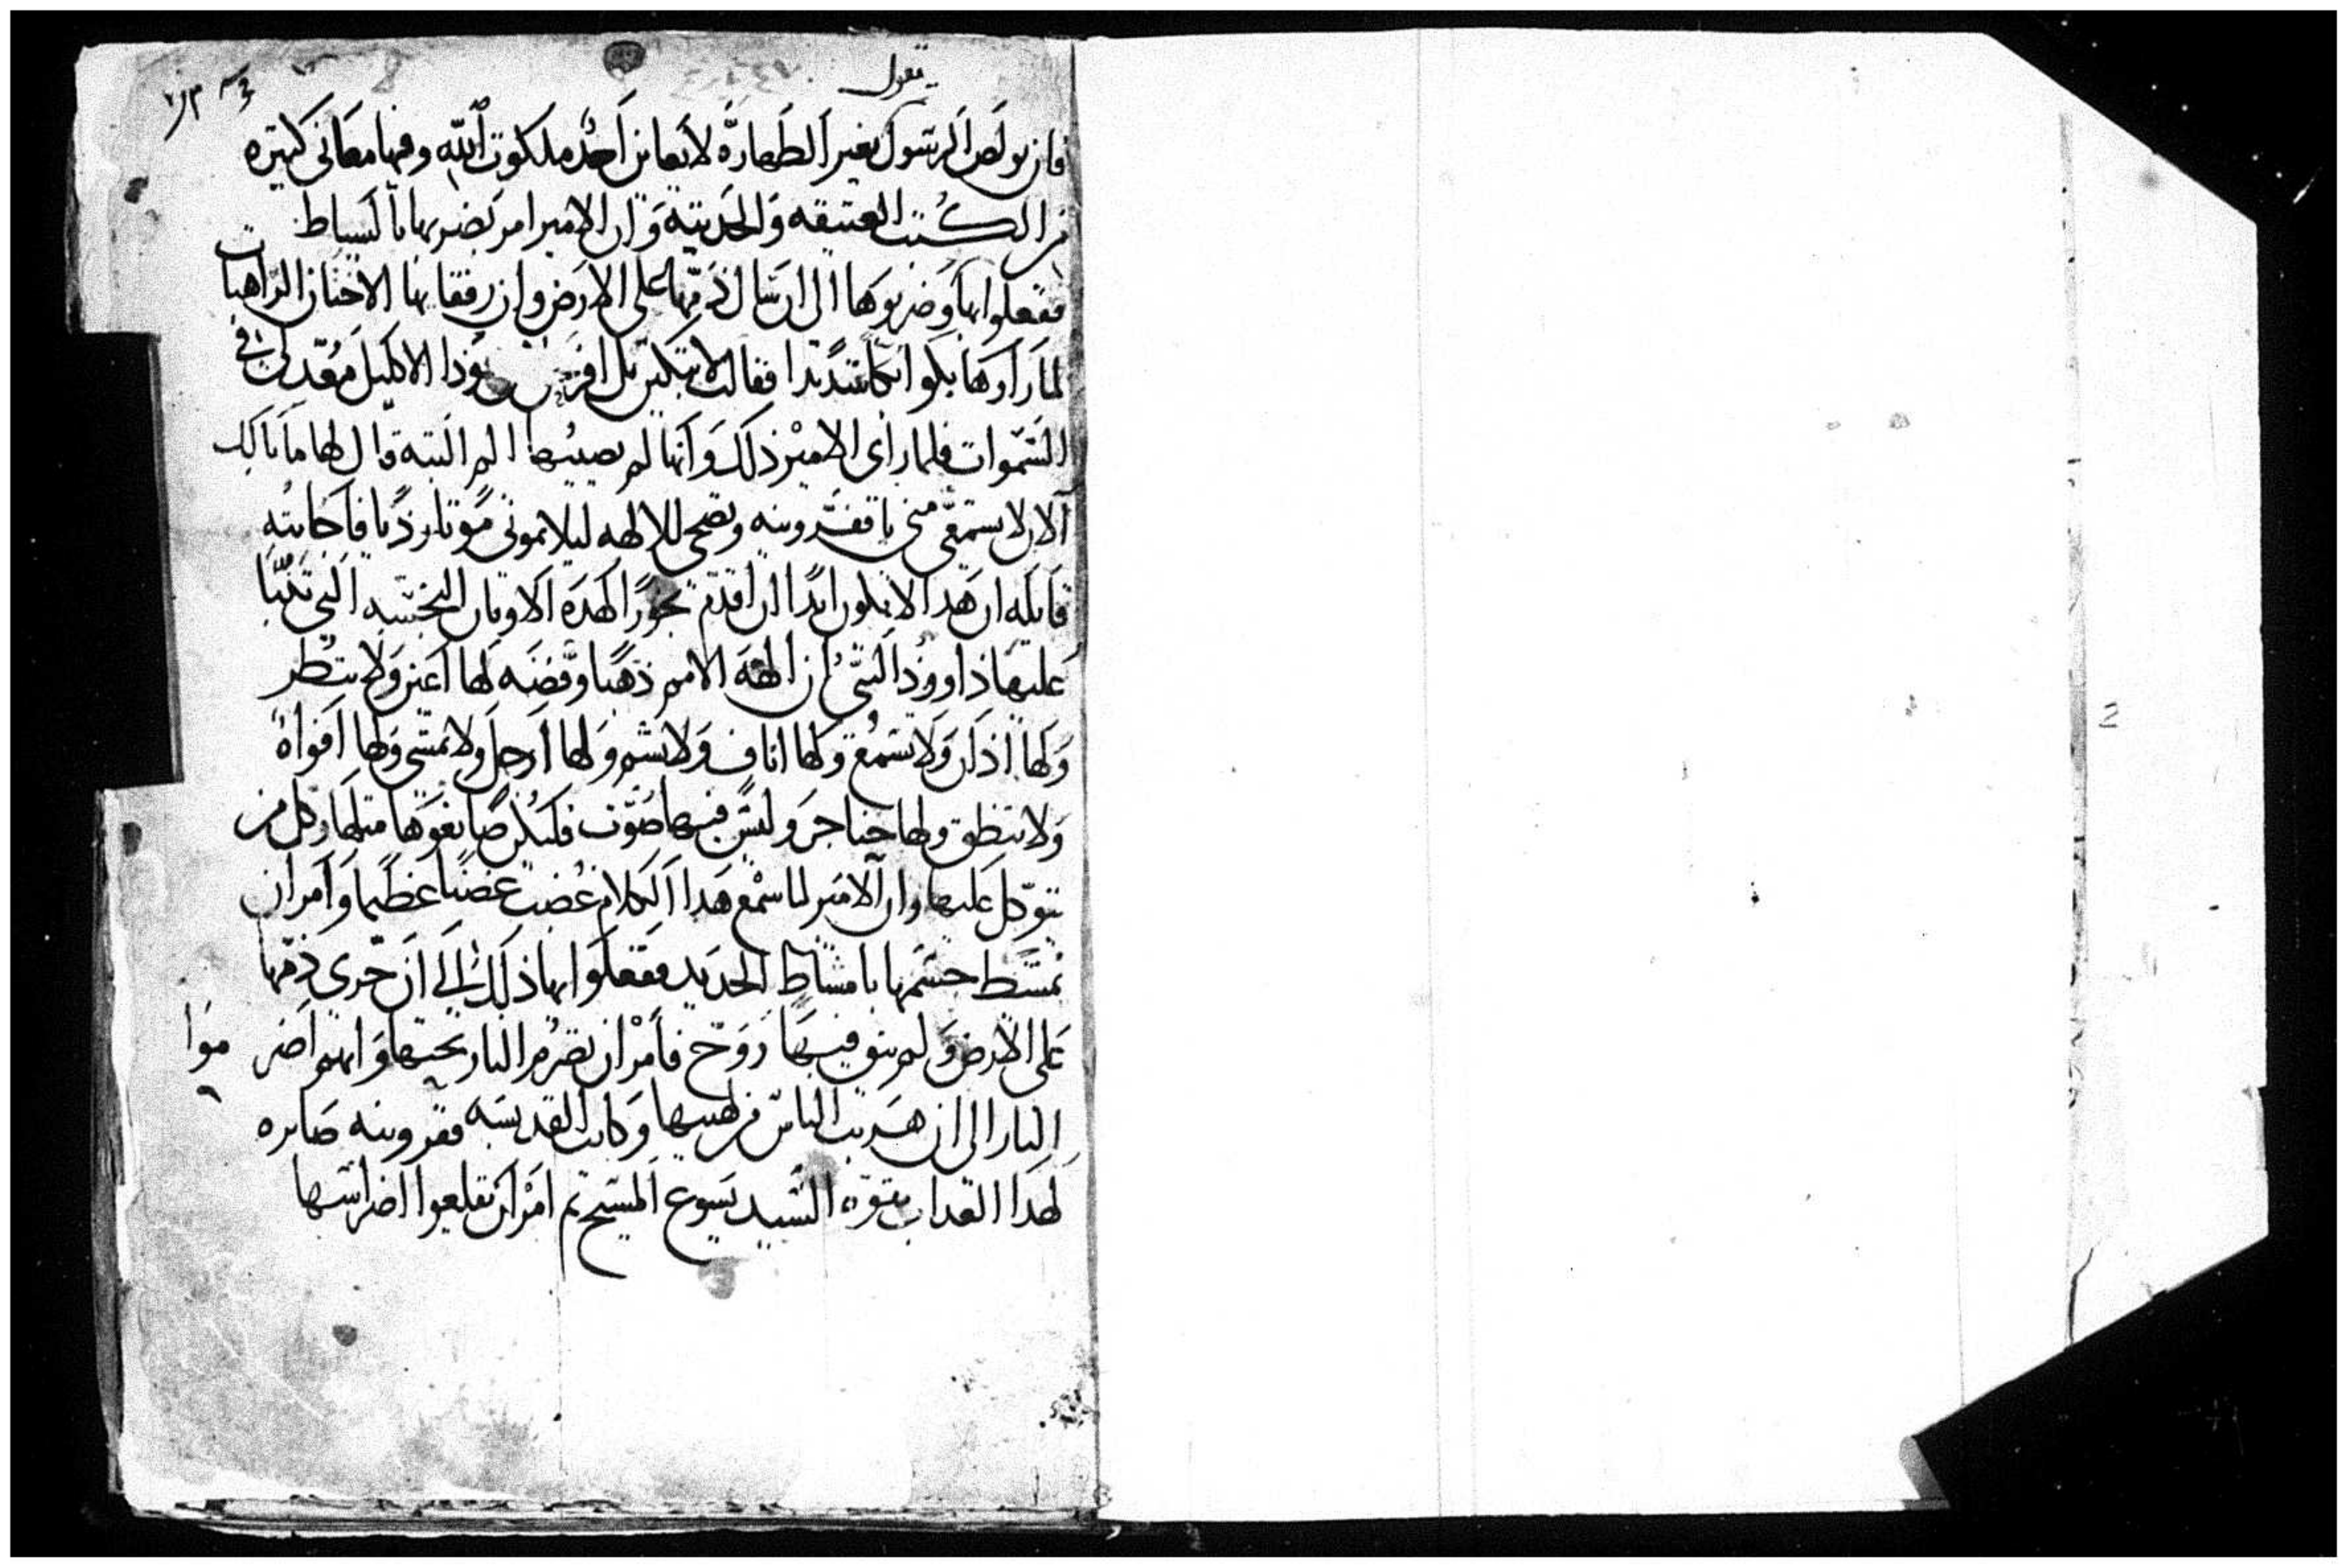 يقول
فان بولص الرسول بغير الطهارة لا يعاين احد ملكوت الله وفيها معاني كثيره
من الكتب العتيقه والحديثه وان الامير امر بضربها بالسياط
ففعلوا بها وضربوها الى ان سال دمها على الارض وان رفقايها الاختان الراهبات
لما راوها بكوا بكا شديدا فقالت لا تبكين بل افرحن هوذا الاكليل معد لي في
السموات فلما راى الامير ذلك وانها لم يصيبها الم البته قال لها ما بالك
الان لا يستمعي مني يا ففرونيه وتضحي للالهه ليلا تموتي موتا رديا فاجابته
قايله ان هدا لا يكون ابدا ان اقدم بخورا لهده الاوثان النجسه التي تنبا
عليها داوود النبي ان الهة الامم ذهبا وفضه لها اعين ولا تنظر
ولها اذان ولا تسمع ولها اناف ولا تشم ولها ارجل ولا تمشي ولها افواه
ولا تنطق ولها حناجر وليس فيها صوت فليكن صانعوها مثلها وكل من
يتوكل عليها وان الامير لما سمع هدا الكلام غضب غضبا عظيما وامر ان
تمشط جسمها بامشاط الحديد ففعلوا بها ذلك الى ان جرى دمها
على الارض ولم يبق فيها روح فامر ان تضرم النار تحتها وانهم اضرموا
النار الى ان هربت الناس من لهيبها وكانت القديسه ففرونيه صابره
لهدا العداب بقوة السيد يسوع المسيح تم امر ان تقلعوا اضراسها
2